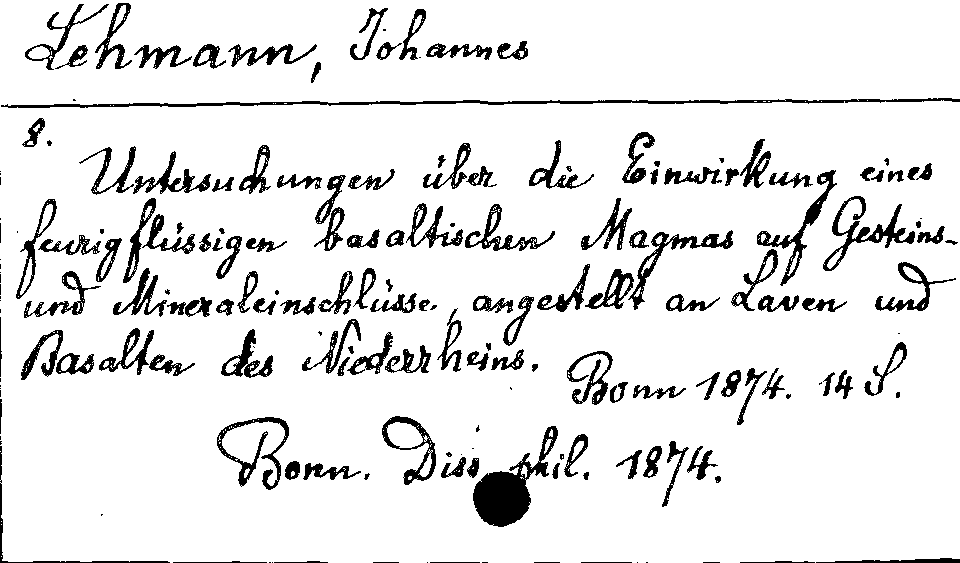 Lehmann, Johannes
8.
Untersuchungen über die Einwirkung eines
feurigflüssigen basaltischen Magmas auf Gesteins-
und Mineraleinschlüsse, angestellt an Laven und
Basalten des Niederrheins.
Bonn 1874. 14 S.
Bonn. Diss. phil. 1874.